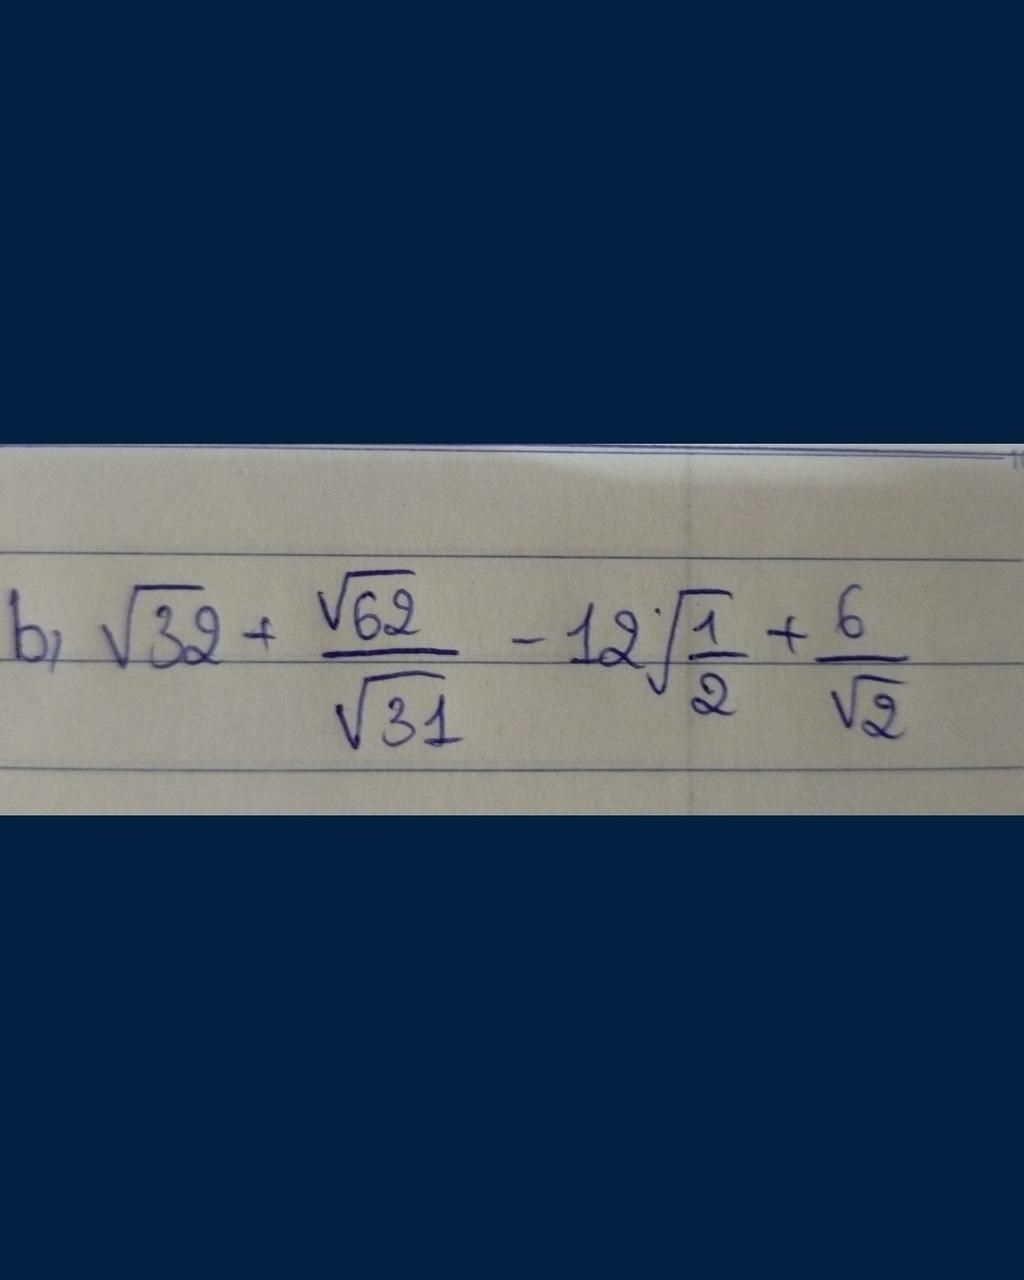 b, √32 + √62/√31 - 12√1/2 + 6/√2